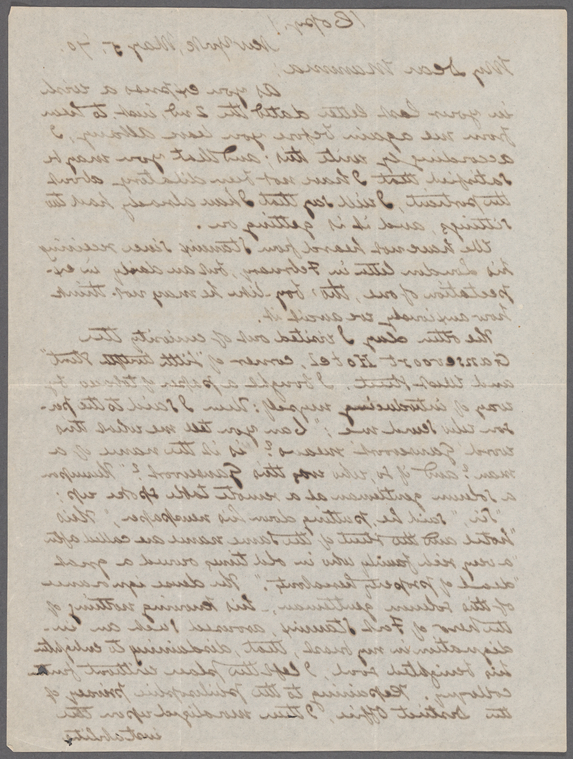 (Copy.)
New York, May 5, '70.
My Dear Mamma:
As you express a wish
in your last letter, dated the 2nd inst. to hear
from me again before you leave Albany, I
according by write this; and that you may be
satisfied that I have not been dilatory about
the portrait, I will say that I have already had two
sittings, and it is getting on.
We have not heard from Stanny since receiving
his London letter in February, but are daily in ex-
pectation of one, tho' boy-like he may not think
how anxiously we await it.
The other day I visited out of curiosity the
Gansevoort Hotel, corner of "Little twelfth Street"
and West Street. I bought a paper of tobacco by
way of introducing myself: Then I said to the per-
son who served me: "Can you tell me what this
word 'Gansevoort' means? is it the name of a
man? and if so, who was this Gansevoort?" Thereupon
a solemn gentleman at a remote table spoke up:
"Sir," said he, putting down his newspaper, "this
hotel and the street of the same name are called after
a very rich family who in old times owned a great
deal of property hereabouts." The dense ignorance
of this solemn gentleman,—his knowing nothing of
the hero of Fort Stanwix, aroused such an in-
dignation in my breast, that, disdaining to enlighten
his benighted soul, I left the place without further
colloquy. Repairing to the philosophic privacy of
the District Office, I then moralized upon the
instability